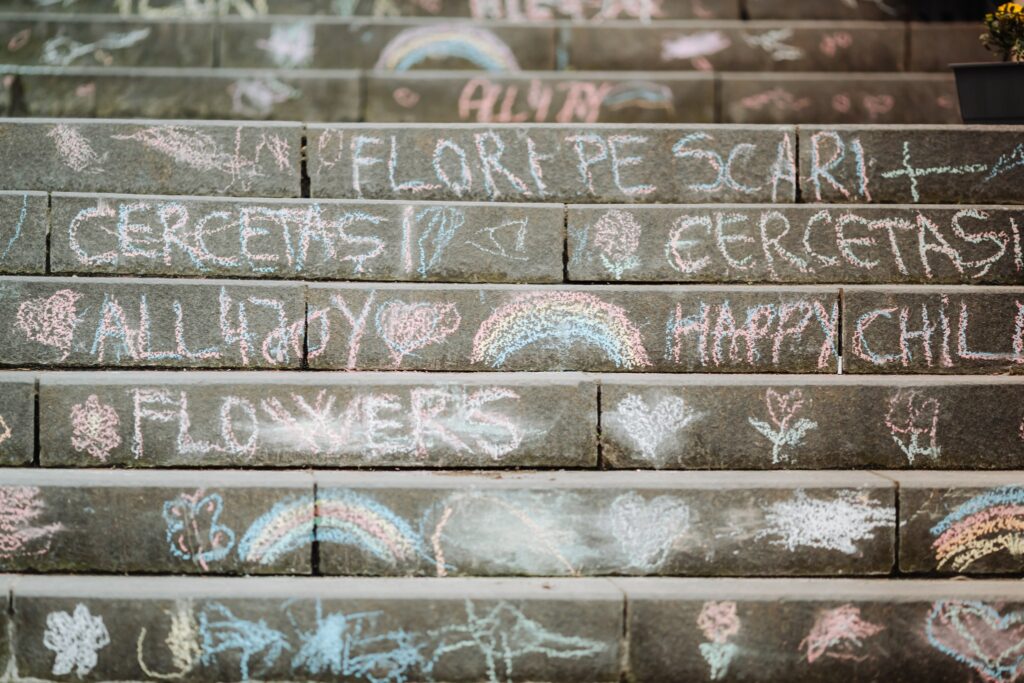 ALL4JOY
FLORI PE SCARI
CERCETASI CERCETASI
ALL4JOY HAPPY CHIL
FLOWERS